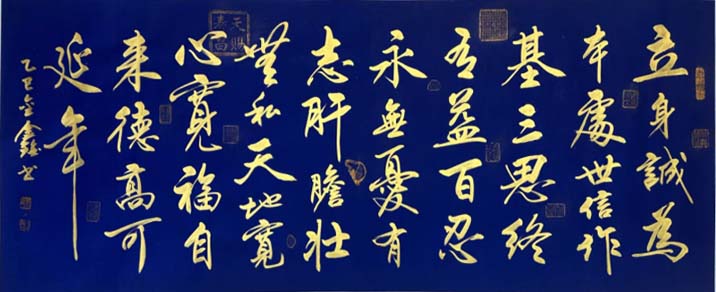 立身誠為
本處世信作
基三思終
有益百忍
永無憂有
志肝膽壯
無私天地寬
心寬福自
来德高可
延年
乙巳金鑫书